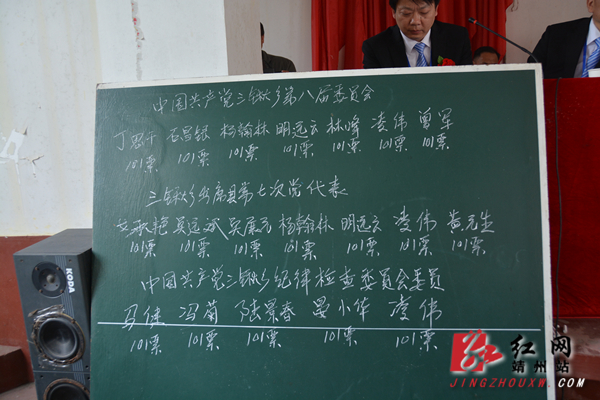 中国共产党三锹乡第八届委员会
丁思千 石昌银 杨翰林 明远云 林峰 凌伟 曾军
101票 101票 101票 101票 101票 101票 101票
三锹乡出席县第七次党代表
吴展云 杨翰林 明远云 凌伟 黄元生
101票 101票 101票 101票 101票 101票 101票
中国共产党三锹乡纪律检查委员会委员
冯菊 陆景春 晏小华 凌伟
101票 101票 101票 101票 101票
KODA
红网
靖州站
JINGZHOUXW.COM